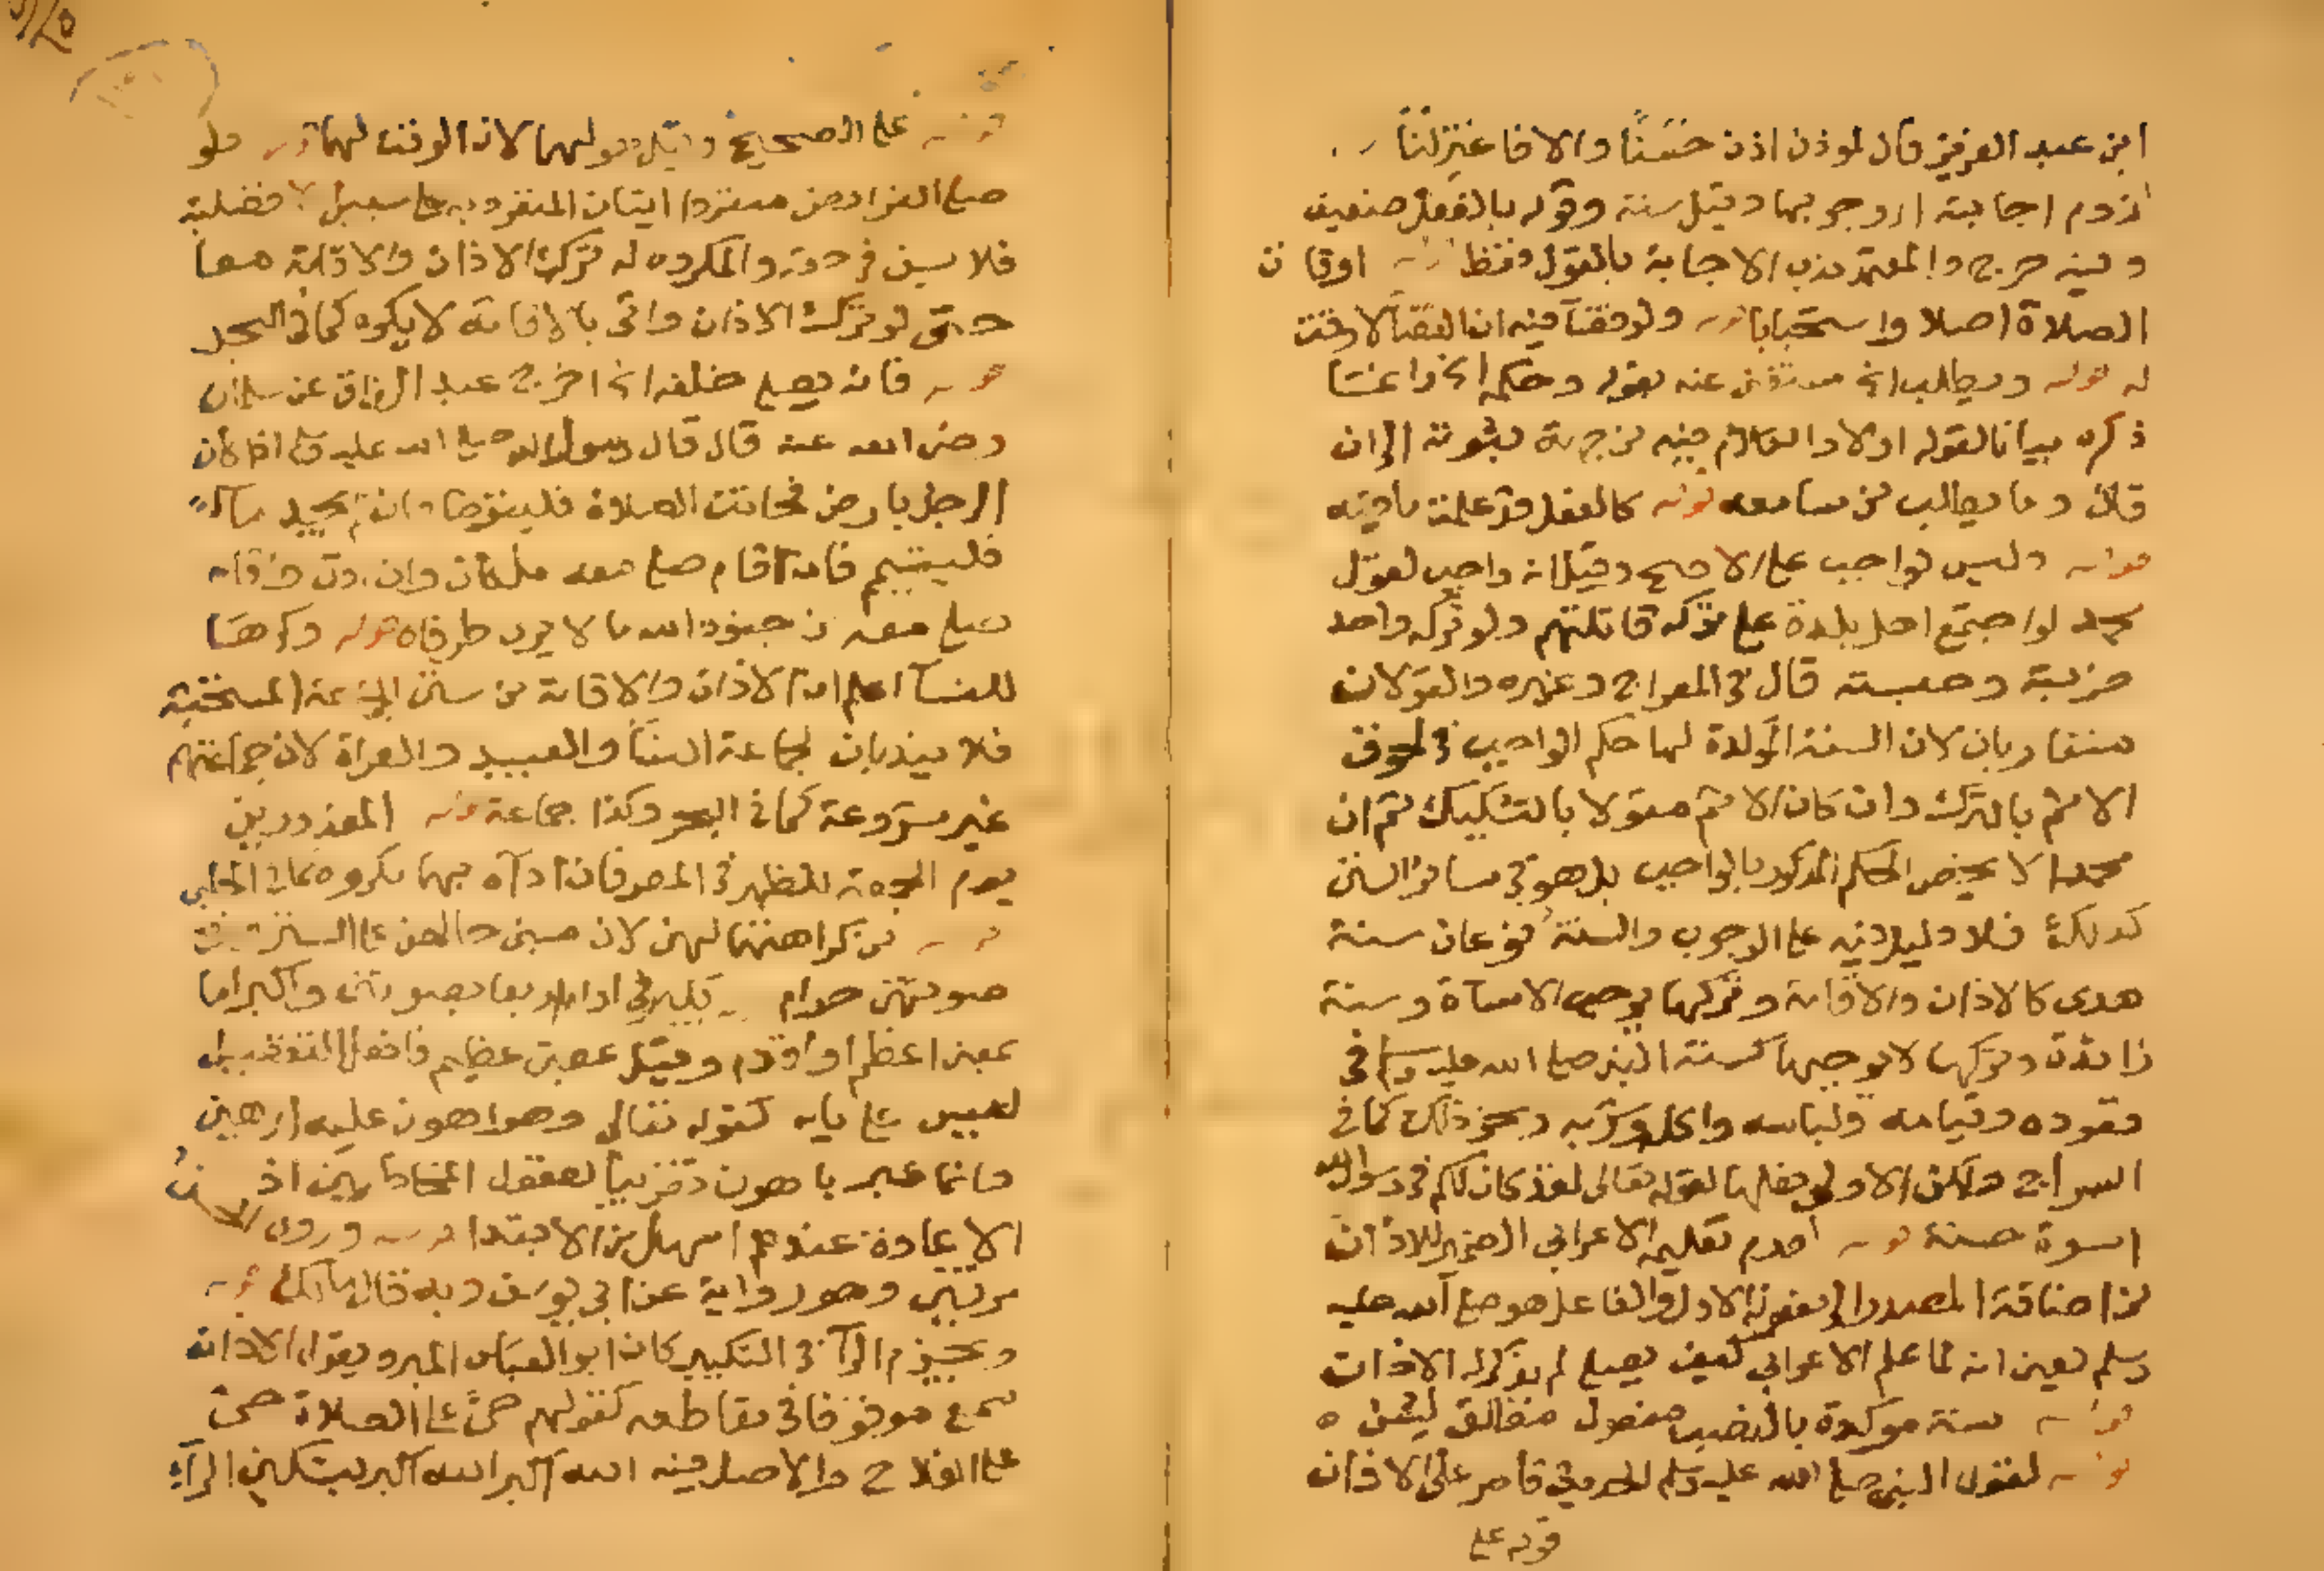 ابن عبد العزيز قال لموذن اذن حسنا والا فاعتزلنا
لزوم اجابته او وجوبها وقيل سنة وقوله بالفعل ضعيف
وفيه حرج والمعتمد ندب الاجابة بالقول فقط قوله اوقات
الصلاة اصلا واستحبابا قوله ولو وقتا فيه ان القضا لا وقت
له قوله ويطالب الخ مستغنى عنه بقوله وحكمه الخ وانما
ذكره بيانا لقوله اولا والكلام فيه من جهة ثبوته الى ان
قال وما يطالب من سامعه قوله كالفعل قد علمت ما فيه
قوله وليس بواجب على الاصح وقيل انه واجب لقول
محمد لو اجتمع اهل بلدة على تركه قاتلتهم ولو تركه واحد
ضربته وحبسته قال في المعراج وغيره والقولان
متقاربان لان السنة المؤكدة لها حكم الواجب في لحوق
الاثم بالترك وان كان الاثم مقولا بالتشكيك ثم ان
محمدا لا يخص الحكم المذكور بالواجب بل هو في سائر السنن
كذلك فلا دليل فيه على الوجوب والسنة نوعان سنة
هدى كالاذان والاقامة وتركها يوجب الاساة وسنة
زائدة وتركها لا يوجبها كسنة النبي صلى الله عليه وسلم في
قعوده وقيامه ولباسه واكله وشربه ونحو ذلك كما في
السراج ولكن الاولى فعلها لقوله تعالى لقد كان لكم في رسول الله
اسوة حسنة قوله لعدم تعليمه الاعرابي الضمير للاذان
من اضافة المصدر الى مفعوله الاول والفاعل هو صلى الله عليه
وسلم يعني انه لما علم الاعرابي كيف يصلي لم يذكر له الاذان
قوله سنة موكدة بالنصب مفعول مطلق ليسن
قوله لقول النبي صلى الله عليه وسلم الحديث قاصر على الاذان
قوله على
قوله على الصحيح وقيل هو لهما لان الوقت لهما قوله ولو
صلى الفرائض منفردا اتيان المنفرد به على سبيل الافضلية
فلا يسن في حقه والمكروه له ترك الاذان والاقامة معا
حتى لو ترك الاذان واتى بالاقامة لا يكره كما في البحر
قوله فانه يصلي خلفه الخ اخرج عبد الرزاق عن سلمان
رضى الله عنه قال قال رسول الله صلى الله عليه وسلم اذا كان
الرجل بارض فحانت الصلاة فليتوضا وان لم يجد ماء
فليتيمم فان اقام صلى معه ملكان وان اذن واقام
صلى معه من جنود الله ما لا يرى طرفاه قوله وكرها
للنسا اعلم ان الاذان والاقامة من سنن الجماعة المستحبة
فلا يندبان لجماعة النسا والعبيد والعراة لان جماعتهم
غير مشروعة كما في البحر وكذا جماعة قوله المعذورين
يوم الجمعة للظهر في المصر فان اداه بهما مكروه كما في الحلبي
قوله من كراهتهما لهن لان مبنى حالهن على الستر ورفع
صوتهن حرام
بمعنى اعظم او اقدم وقيل بمعنى عظيم وافعل التفضيل
ليس على بابه كقوله تعالى وهو اهون عليه اي هين
وانما عبر باهون تقريبا لعقول المخاطبين اذ
الاعادة عندهم اسهل من الابتدا قوله وروى الحسن
مرتين وهو رواية عن ابي يوسف وبه قال مالك قوله
ويجزم الراء في التكبير كان ابو العباس المبرد يقول الاذان
سمع موقوفا في مقاطعه كقولهم حي على الصلاة حي
على الفلاح والاصل فيه الله اكبر الله اكبر بتسكين الراء